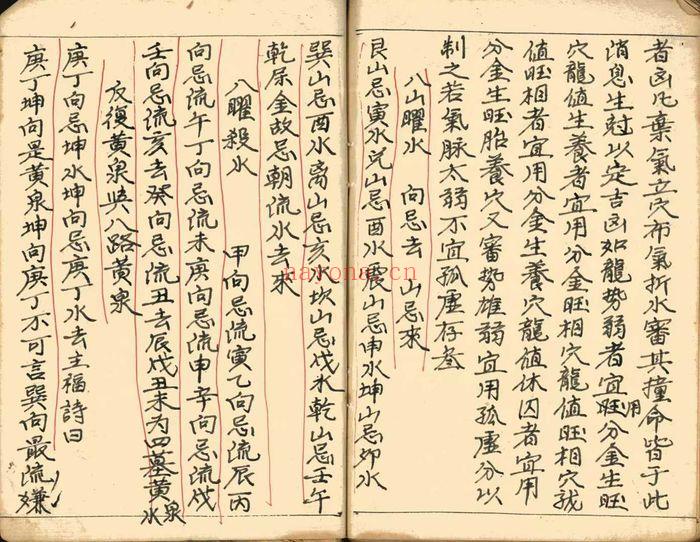 者凶凡棄氣立穴布氣折水審其撞命皆于此
消息生尅以定吉凶如龍勢弱者宜用旺分金生旺
穴龍值生養者宜用分金旺相穴龍值旺相穴龍
值旺相者宜用分金生養穴龍值休囚者宜用
分金生旺胎養穴又審勢雄弱宜用孤虛分以
制之若氣脉太弱不宜孤虛存叅
八山曜水 向忌去 山忌來
艮山忌寅水兌山忌酉水辰山忌申水坤山忌卯水
巽山忌酉水离山忌亥水坎山忌戊水乾山忌壬午
乾屬金故忌朝流水去來
八曜殺水 甲向忌流寅乙向忌流辰丙
向忌流午丁向忌流未庚向忌流申辛向忌流戌
壬向忌流亥去癸向忌流丑去辰戌丑未为四墓黄泉水
反復黃泉與八路黄泉
庚丁向忌坤水坤向忌庚丁水去主福詩曰
庚丁坤向是黄泉坤向庚丁不可言巽向最流嫌
nayona.cn